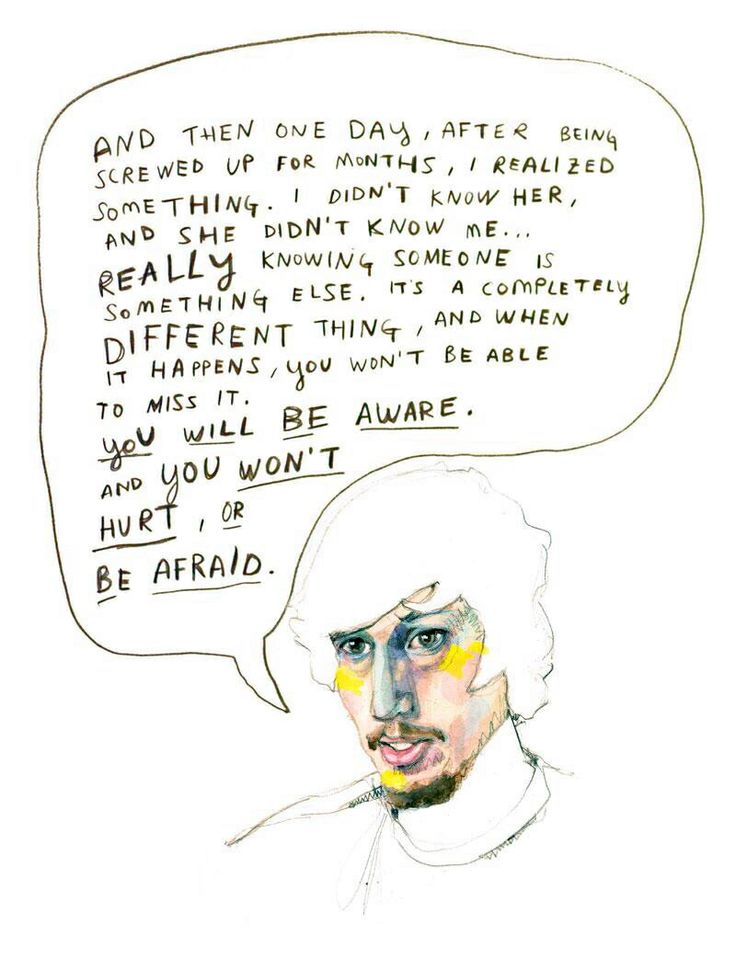 AND THEN ONE DAY, AFTER BEING
SCREWED UP FOR MONTHS, I REALIZED
SOMETHING. I DIDN'T KNOW HER,
AND SHE DIDN'T KNOW ME...
REALLY KNOWING SOMEONE IS
SOMETHING ELSE. IT'S A COMPLETELY
DIFFERENT THING, AND WHEN
IT HAPPENS, YOU WON'T BE ABLE
TO MISS IT.
YOU WILL BE AWARE.
AND YOU WON'T
HURT, OR
BE AFRAID.